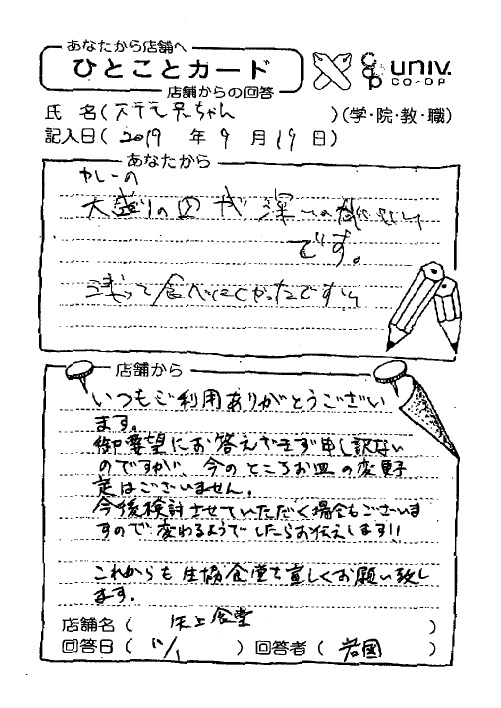 あなたから店舗へ
ひとことカード
店舗からの回答
univ.
CO-OP
氏 名( ちゃん )(学・院・教・職)
記入日( 2019 年 9 月 19 日)
あなたから
カレーの
大盛りの皿が深いの
です。
浅くて食べにくかったですり
店舗から
いつもご利用ありがとうござい
ます。
御要望にお答えできず申し訳ない
のですが、今のところお皿の変更予
定はございません。
今後検討させていただく場合もございま
すので変わるようでしたらお伝えします!!
これからも生協食堂を宜しくお願い致し
ます。
店舗名( 食堂 )
回答日( 11/1 ) 回答者( 岩國 )